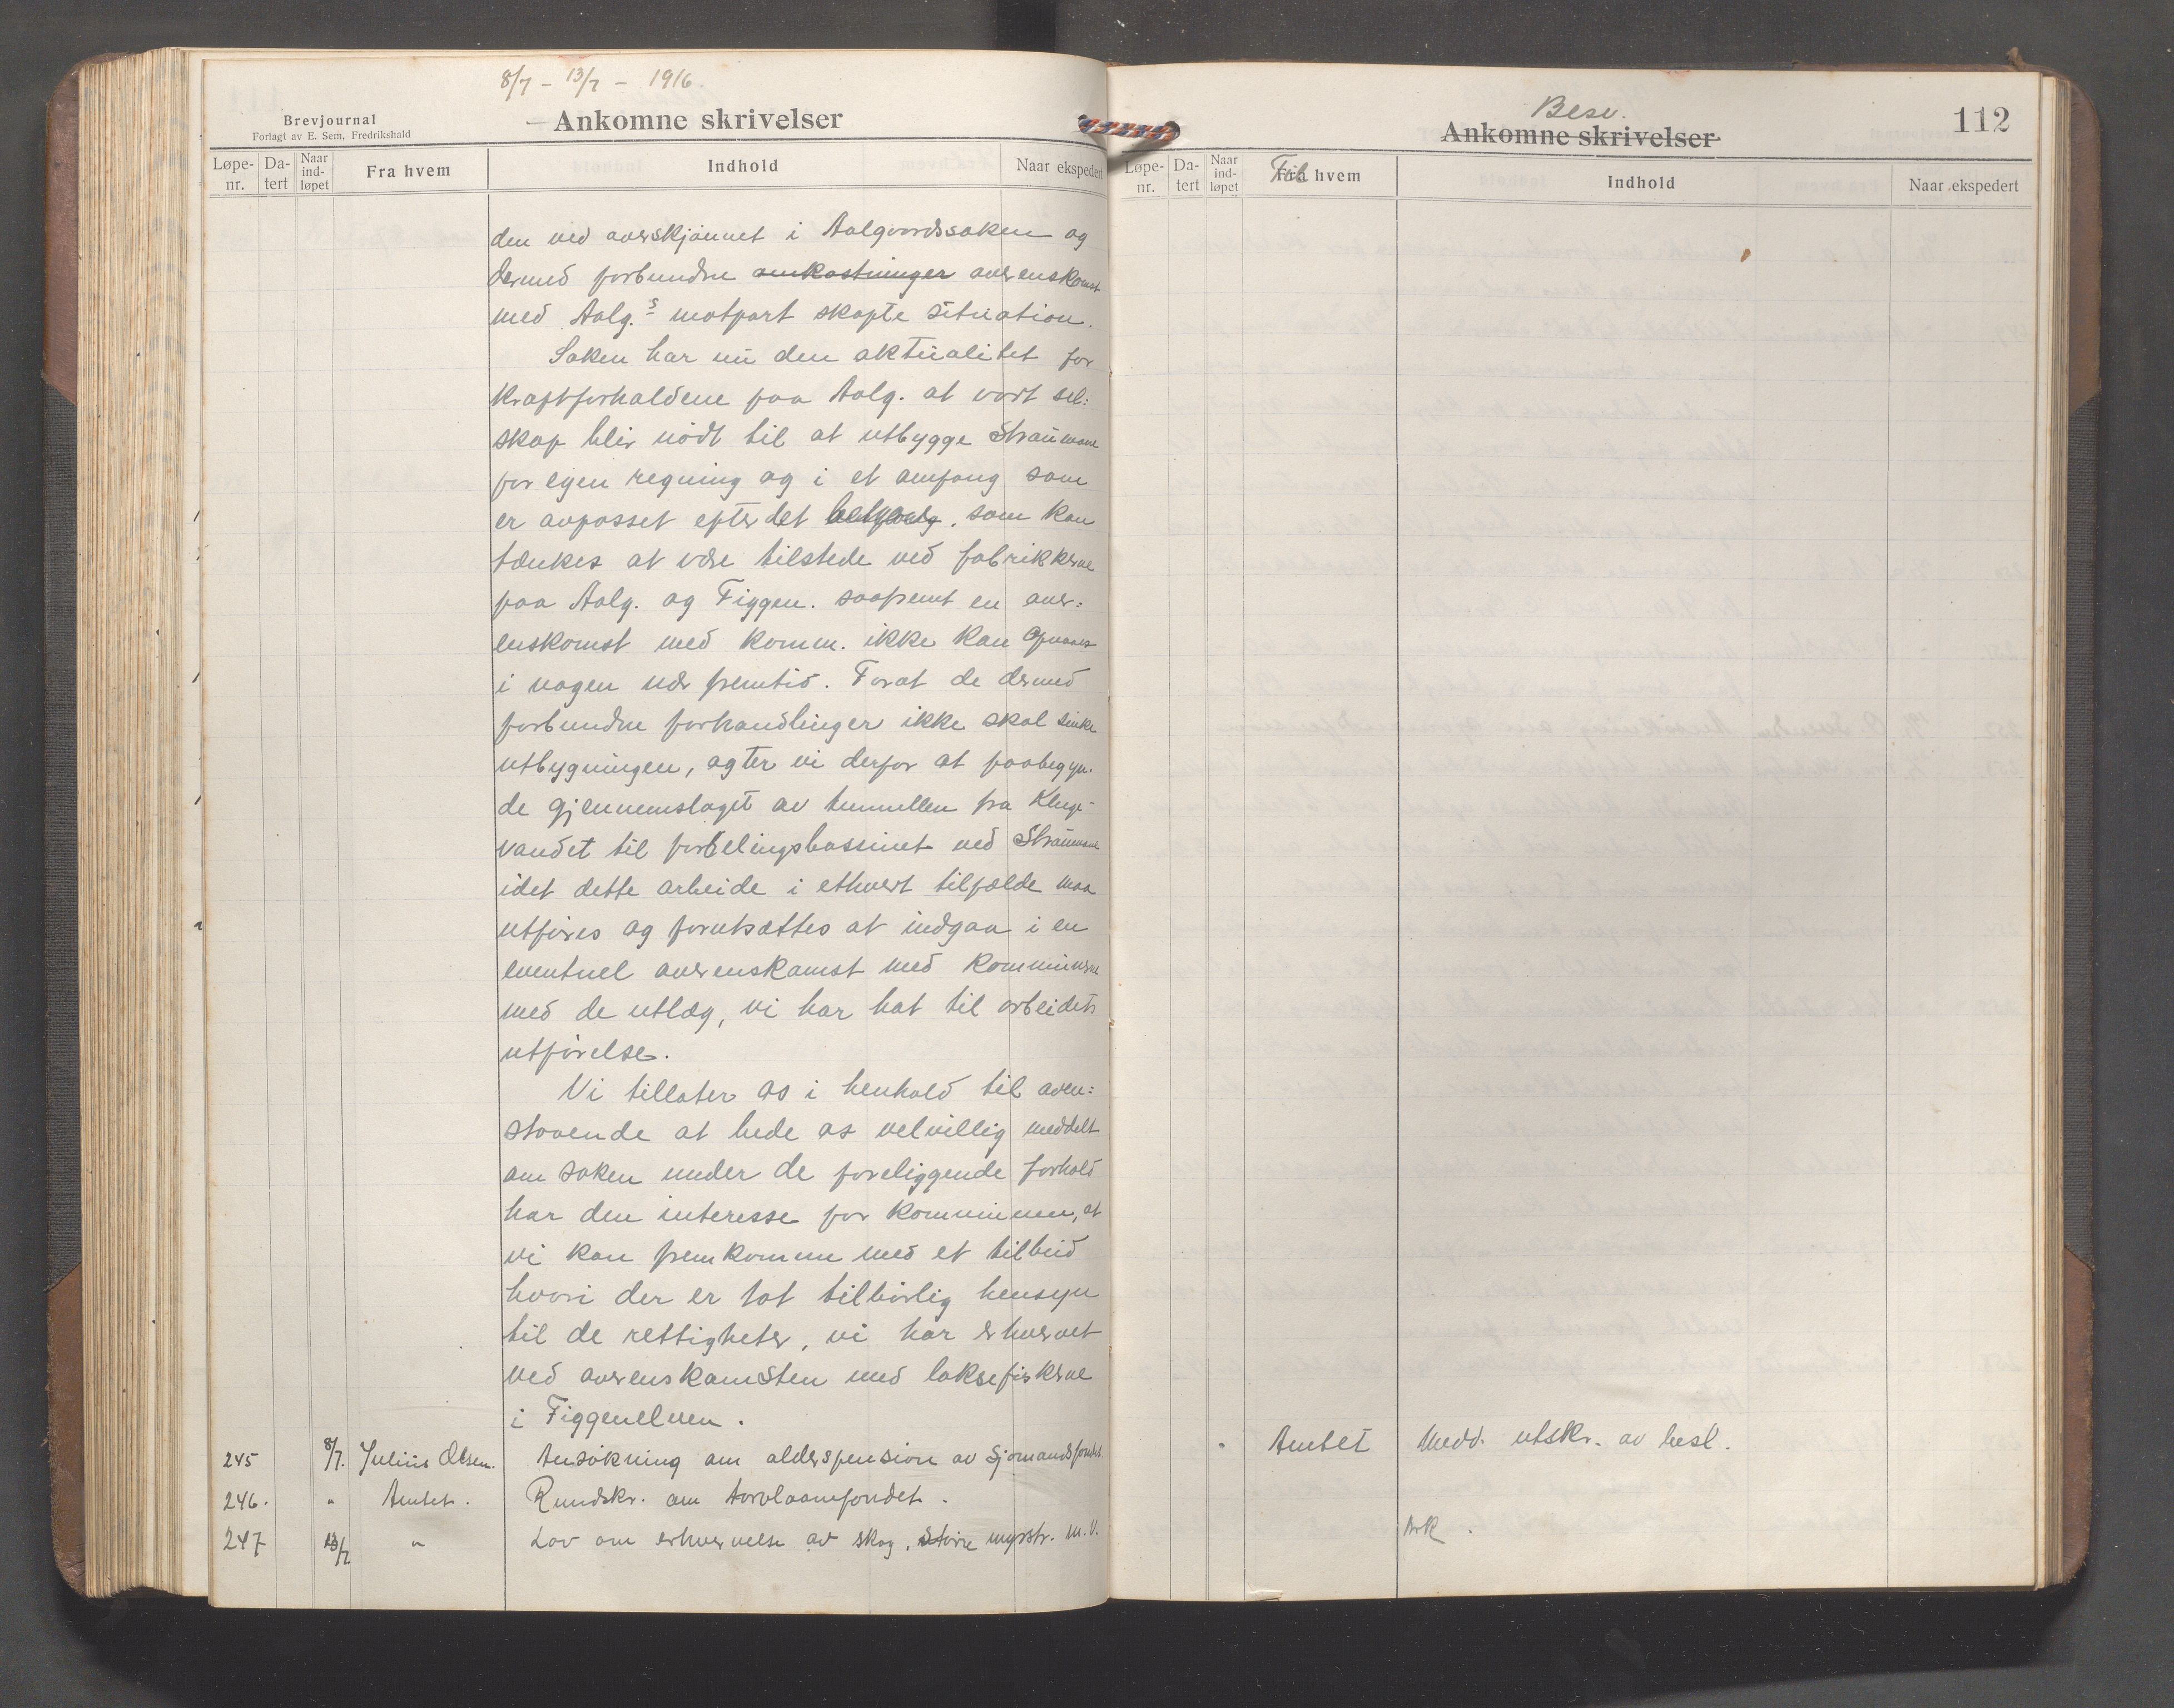 8/7 – 13/7 – 1916.
Brevjournal
Forlagt av E. Sem, Fredrikshald
Ankomne skrivelser
Løpe-nr. Da-tert Naar ind-løpet Fra hvem Indhold Naar ekspedert
den ved overskjønnet i Aalgaardssaken og
dermed forbundne omkostninger overenskomst
med Aalg.s motpart skapte situation.
Saken har nu den aktualitet for
kraftforholdene paa Aalg. at vort sel:
skap blir nödt til at utbygge Straumane
for egen regning og i et omfang som
er avpasset efter det som kan
tænkes at være tilstede ved fabrikkerne
paa Aalg. og Figgen. saafremt en over:
enskomst med komm. ikke kan opnaaes
i nogen nær fremtid. Forat de dermed
forbundne forhandlinger ikke skal sinke
utbygningen, agter vi derfor at paabegyn.
de gjennemslaget av tunnellen fra Kluge-
vandet til fordelingsbassinet ved Straumane
idet dette arbeide i ethvert tilfælde maa
utføres og forutsættes at indgaa i en
eventuel overenskomst med kommunerne
med de utlæg, vi har hat til arbeidets
utførelse.
Vi tillater os i henhold til oven:
staaende at bede os velvillig meddelt
om saken under de foreliggende forhold
har den interesse for kommunen, at
vi kan fremkomme med et tilbud
hvori der er tat tilbørlig hensyn
til de rettigheter, vi har erhvervet
ved overenskomsten med laksefiskerne
i Figgenelven.
245 8/7. Julius Olsen. Ansökning om alderspension av Sjømandsfondet
246. " Amtet. Rundskr. om Torvlaanfondet.
247 13/7 " Lov om erhvervelse av skog, større myrstr. m.v.
Besv.
Ankomne skrivelser
112
Løpe-nr. Da-tert Naar ind-løpet Fra hvem Til Indhold Naar ekspedert
" Amtet Medd. utskr. av besl.
Ark.